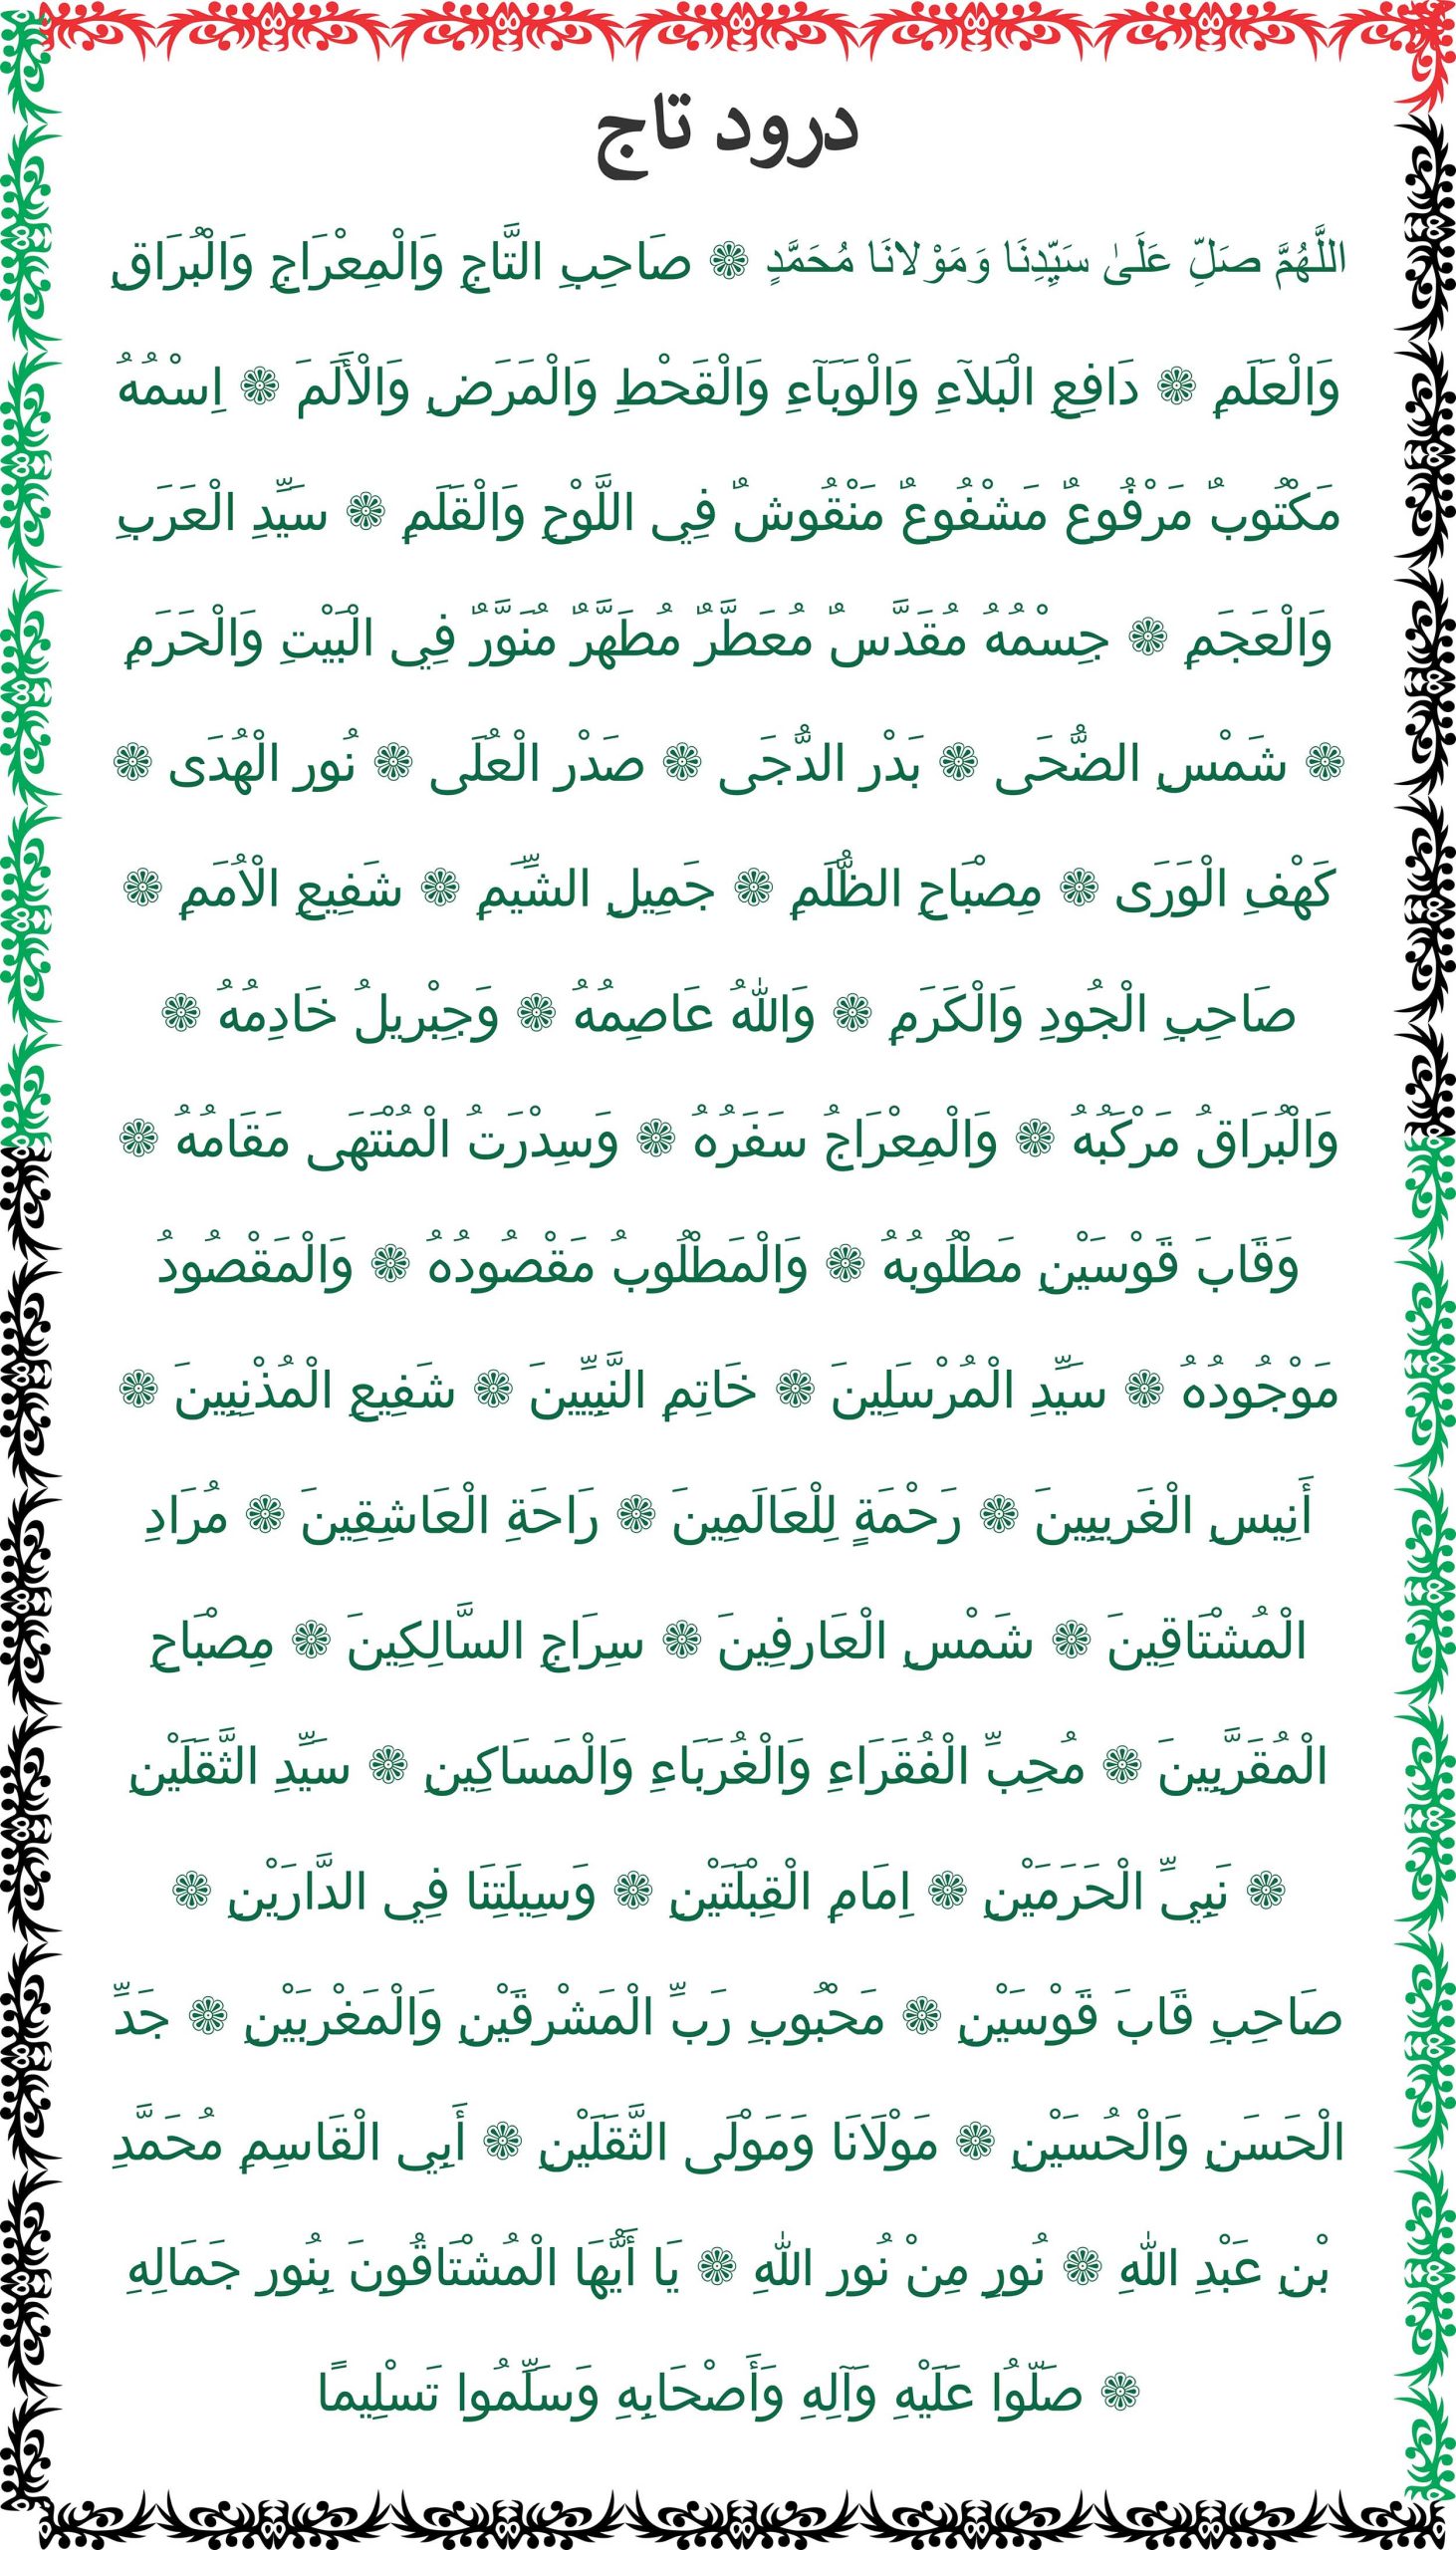 درود تاج
اللَّهُمَّ صَلِّ عَلَىٰ سَيِّدِنَا وَمَوْلانَا مُحَمَّدٍ ❁ صَاحِبِ التَّاجِ وَالْمِعْرَاجِ وَالْبُرَاقِ
وَالْعَلَمِ ❁ دَافِعِ الْبَلآءِ وَالْوَبَآءِ وَالْقَحْطِ وَالْمَرَضِ وَالْأَلَمَ ❁ اِسْمُهُ
مَكْتُوبٌ مَرْفُوعٌ مَشْفُوعٌ مَنْقُوشٌ فِي اللَّوْحِ وَالْقَلَمِ ❁ سَيِّدِ الْعَرَبِ
وَالْعَجَمِ ❁ جِسْمُهُ مُقَدَّسٌ مُعَطَّرٌ مُطَهَّرٌ مُنَوَّرٌ فِي الْبَيْتِ وَالْحَرَمِ
❁ شَمْسِ الضُّحَى ❁ بَدْر الدُّجَى ❁ صَدْر الْعُلَى ❁ نُور الْهُدَى ❁
كَهْفِ الْوَرَى ❁ مِصْبَاحِ الظُّلَمِ ❁ جَمِيلِ الشِّيَمِ ❁ شَفِيعِ الْاُمَمِ ❁
صَاحِبِ الْجُودِ وَالْكَرَمِ ❁ وَاللهُ عَاصِمُهُ ❁ وَجِبْريلُ خَادِمُهُ ❁
وَالْبُرَاقُ مَرْكَبُهُ ❁ وَالْمِعْرَاجُ سَفَرُهُ ❁ وَسِدْرَتُ الْمُنْتَهَى مَقَامُهُ ❁
وَقَابَ قَوْسَيْنِ مَطْلُوبُهُ ❁ وَالْمَطْلُوبُ مَقْصُودُهُ ❁ وَالْمَقْصُودُ
مَوْجُودُهُ ❁ سَيِّدِ الْمُرْسَلِينَ ❁ خَاتِمِ النَّبِيِّينَ ❁ شَفِيعِ الْمُذْنِبِينَ ❁
أَنِيسِ الْغَريبِينَ ❁ رَحْمَةٍ لِلْعَالَمِينَ ❁ رَاحَةِ الْعَاشِقِينَ ❁ مُرَادِ
الْمُشْتَاقِينَ ❁ شَمْسِ الْعَارفِينَ ❁ سِرَاجِ السَّالِكِينَ ❁ مِصْبَاحِ
الْمُقَرَّبِينَ ❁ مُحِبِّ الْفُقَرَاءِ وَالْغُرَبَاءِ وَالْمَسَاكِينِ ❁ سَيِّدِ الثَّقَلَيْنِ
❁ نَبِيِّ الْحَرَمَيْنِ ❁ اِمَامِ الْقِبْلَتَيْنِ ❁ وَسِيلَتِنَا فِي الدَّارَيْنِ ❁
صَاحِبِ قَابَ قَوْسَيْنِ ❁ مَحْبُوبِ رَبِّ الْمَشْرقَيْنِ وَالْمَغْربَيْنِ ❁ جَدِّ
الْحَسَنِ وَالْحُسَيْنِ ❁ مَوْلَانَا وَمَوْلَى الثَّقَلَيْنِ ❁ أَبِي الْقَاسِمِ مُحَمَّدِ
بْنِ عَبْدِ اللهِ ❁ نُورٍ مِنْ نُور اللهِ ❁ يَا أَيُّهَا الْمُشْتَاقُونَ بِنُور جَمَالِهِ
❁ صَلُّوا عَلَيْهِ وَآلِهِ وَأَصْحَابِهِ وَسَلِّمُوا تَسْلِيمًا